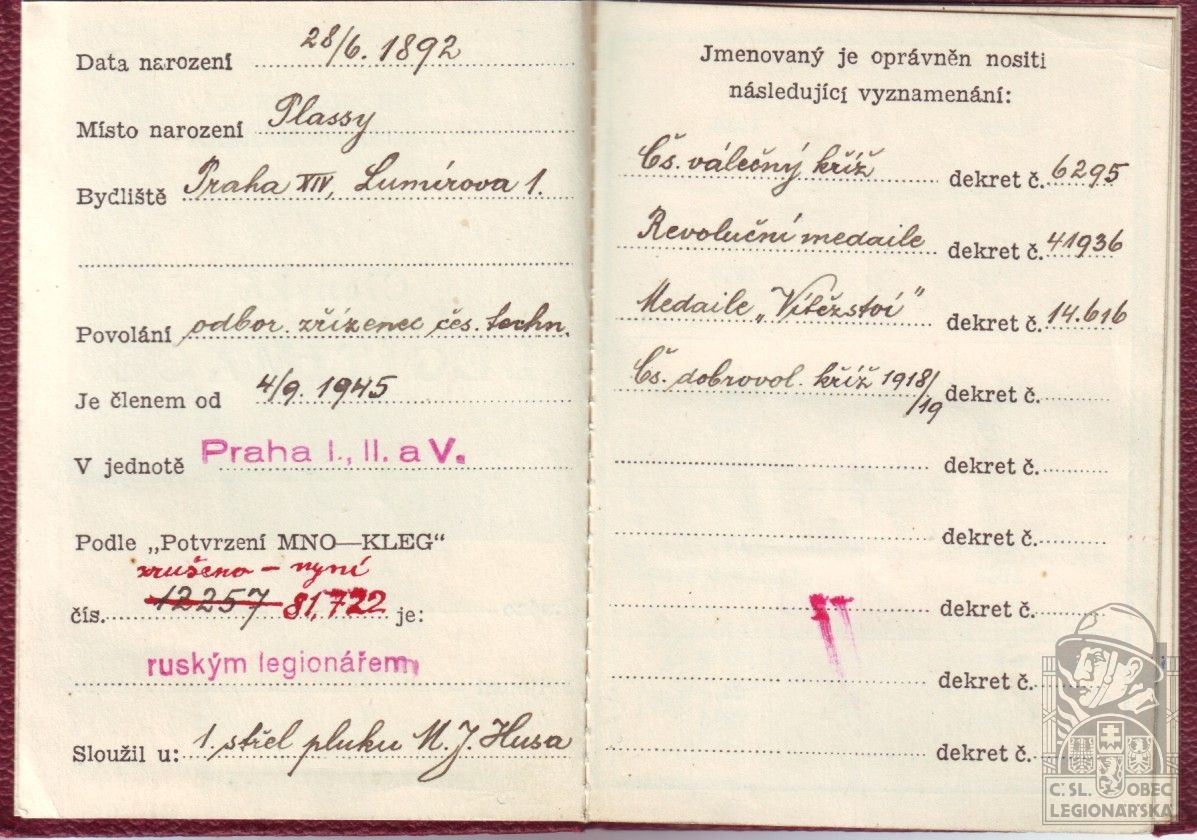 Data narození 28/6. 1892
Místo narození Plassy
Bydliště Praha XIV, Lumírova 1.
Povolání odbor. zřízenec čes. techn.
Je členem od 4/9. 1945
V jednotě Praha I., II. a V.
Podle „Potvrzení MNO—KLEG“
zrušeno – nyní
čís. 12257 81,722 je:
ruským legionářem,
Sloužil u: 1. střel pluku M. J. Husa
Jmenovaný je oprávněn nositi
následující vyznamenání:
Čs. válečný kříž dekret č. 6295
Revoluční medaile dekret č. 41936
Medaile „Vítězství“ dekret č. 14.616
Čs. dobrovol. kříž 1918/ dekret č.
/19
dekret č.
dekret č.
dekret č.
dekret č.
dekret č.
Č. SL. OBEC
LEGIONÁŘSKÁ